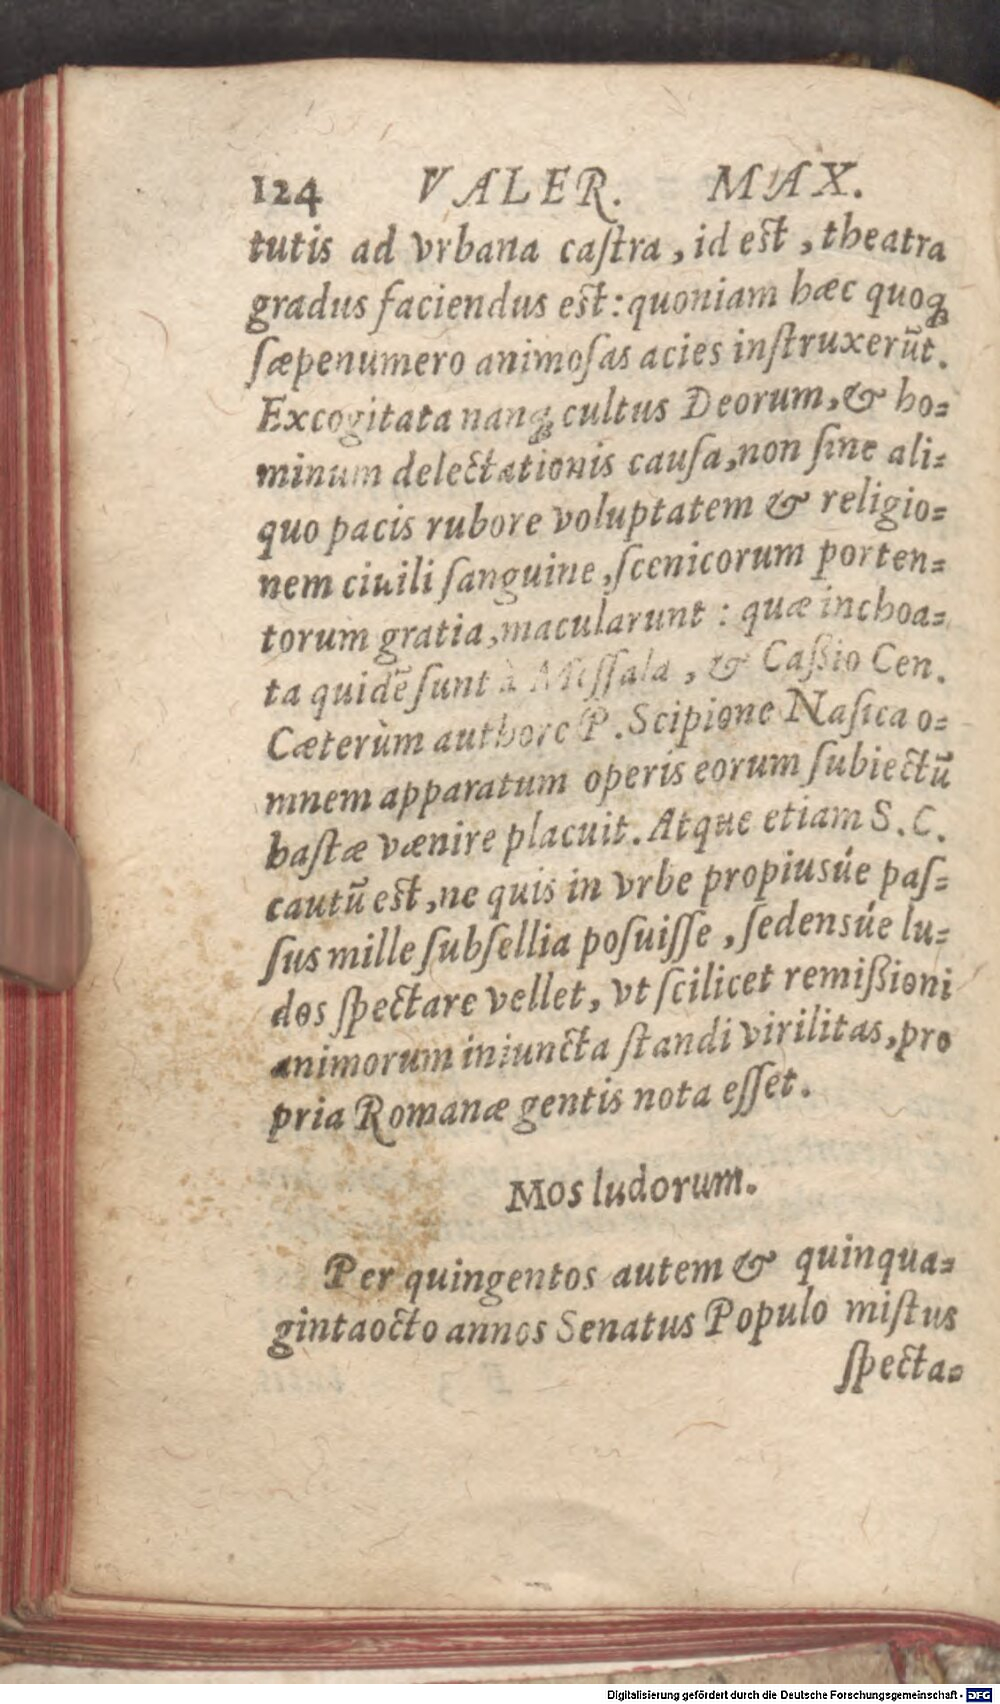 124 VALER. MAX.
tutis ad vrbana caſtra, id eſt, theatra
gradus faciendus eſt: quoniam hæc quoq;
ſæpenumero animoſas acies inſtruxerūt.
Excogitata nanq; cultus Deorum, & ho=
minum delectationis cauſa, non ſine ali=
quo pacis rubore voluptatem & religio=
nem ciuili ſanguine, ſcenicorum porten=
torum gratia, macularunt: quæ inchoa=
ta quidē ſunt à Meſſala, & Caßio Cen.
Cæterùm authore P. Scipione Naſica o=
mnem apparatum operis eorum ſubiectū
haſtæ vænire placuit. Atque etiam S.C.
cautū eſt, ne quis in vrbe propiusúe paſ=
ſus mille ſubſellia poſuiſſe, ſedensúe lu=
dos ſpectare vellet, vt ſcilicet remißioni
animorum iniuncta ſtandi virilitas, pro
pria Romanæ gentis nota eſſet.
Mos ludorum.
Per quingentos autem & quinqua=
gintaocto annos Senatus Populo miſtus
ſpecta=
Digitalisierung gefördert durch die Deutsche Forschungsgemeinschaft - DFG